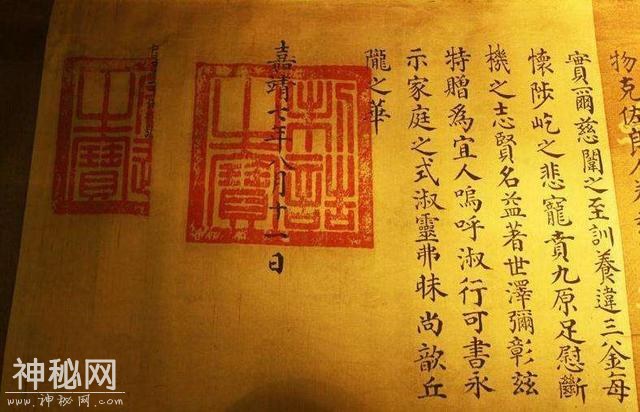 物克佐
實爾慈闈之至訓養違三釜每
懷陟屺之悲寵賁九原足慰斷
機之志賢名益著世澤彌彰茲
特贈為宜人嗚呼淑行可書永
示家庭之式淑靈弗昧尚歆丘
隴之華
嘉靖七年八月十一日
制誥
之寶
之寶
神秘网
www.神秘网.com